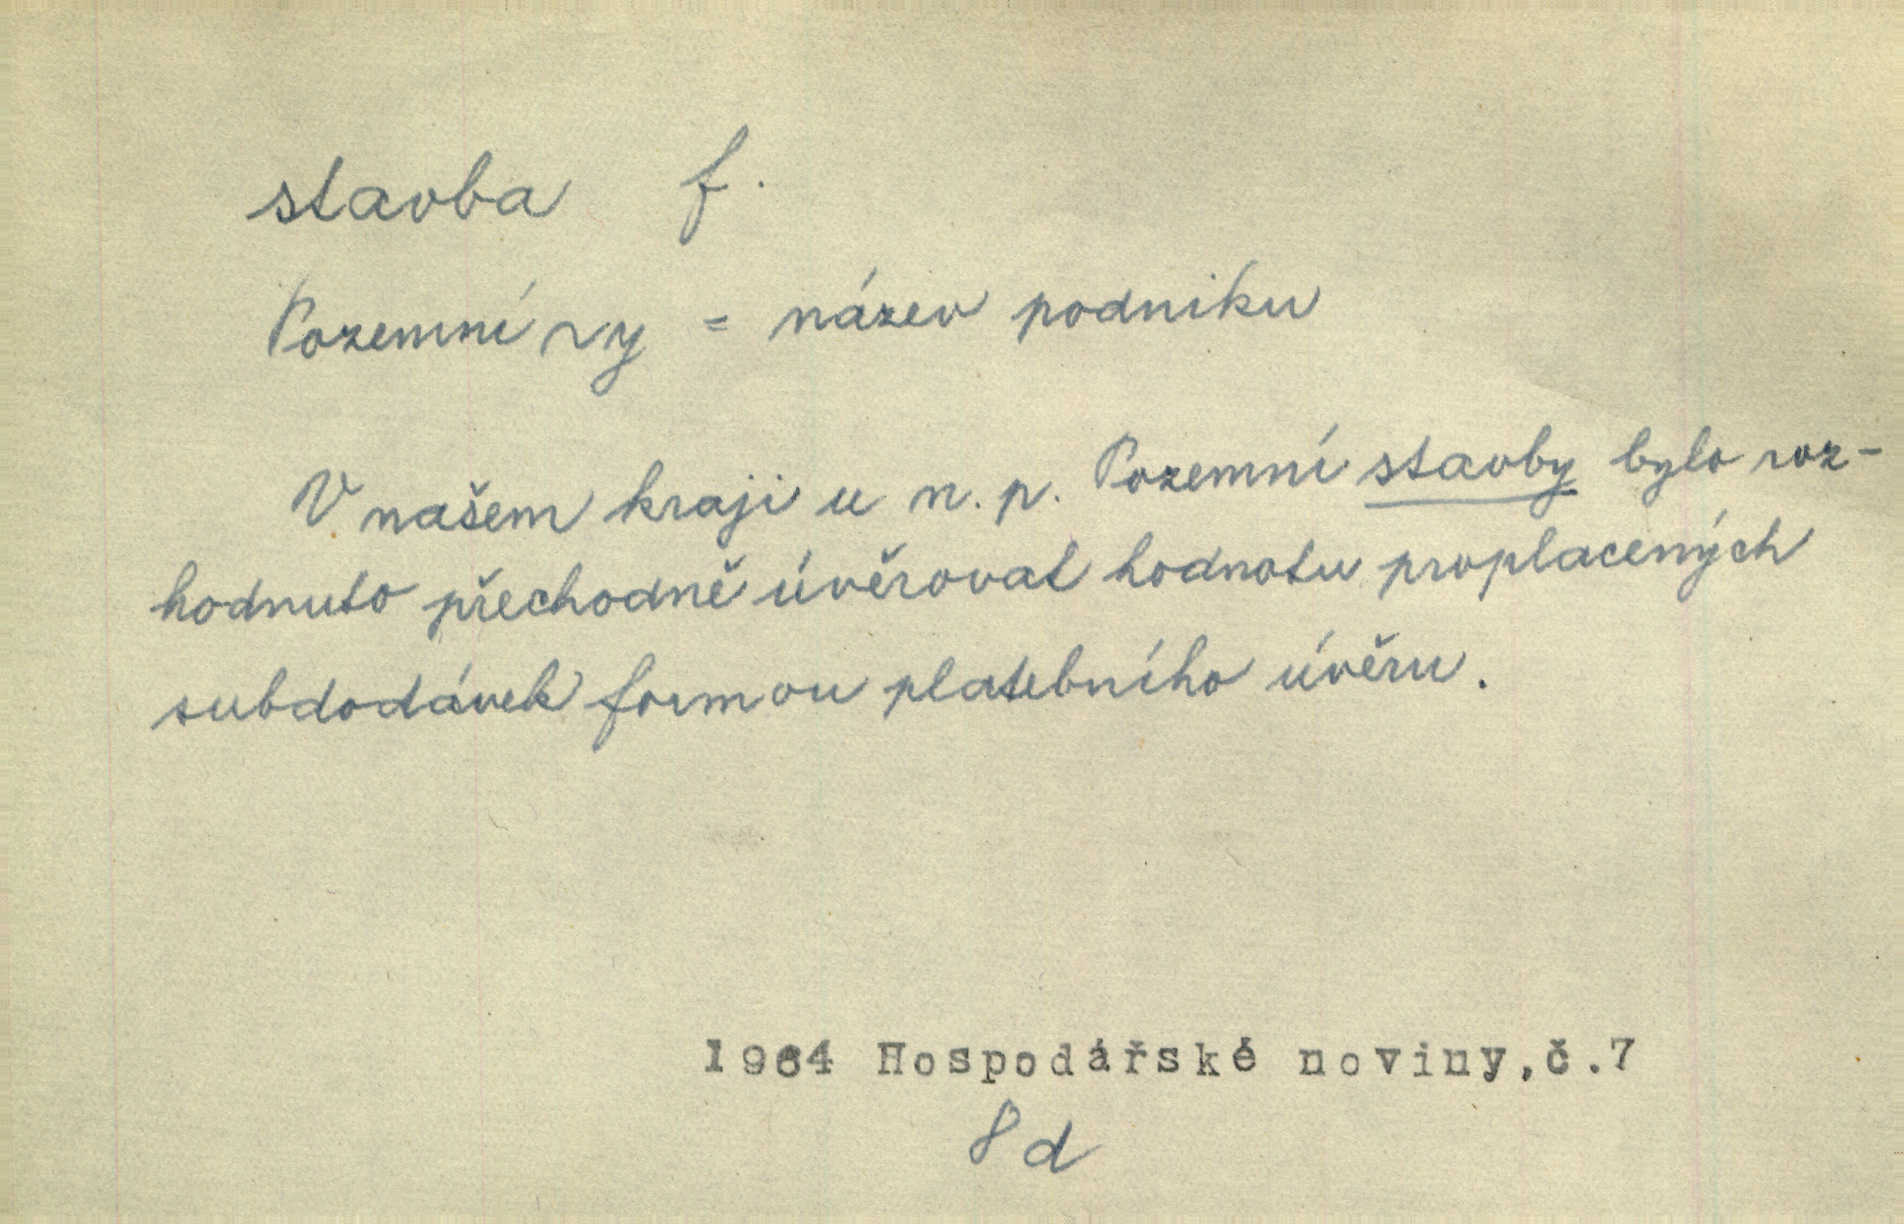 stavba f.
Pozemní ~y = název podniku
V našem kraji u n. p. Pozemní stavby bylo roz-
hodnuto přechodně úvěrovat hodnotu proplacených
subdodávek formou platebního úvěru.
1964 Hospodářské noviny,č.7
8 d